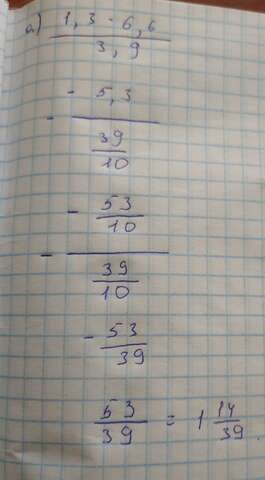 а) 1,3 - 6,6
3,9
- 5,3
-
39
10
- 53
10
-
39
10
- 53
39
53
39
= 1 14
39